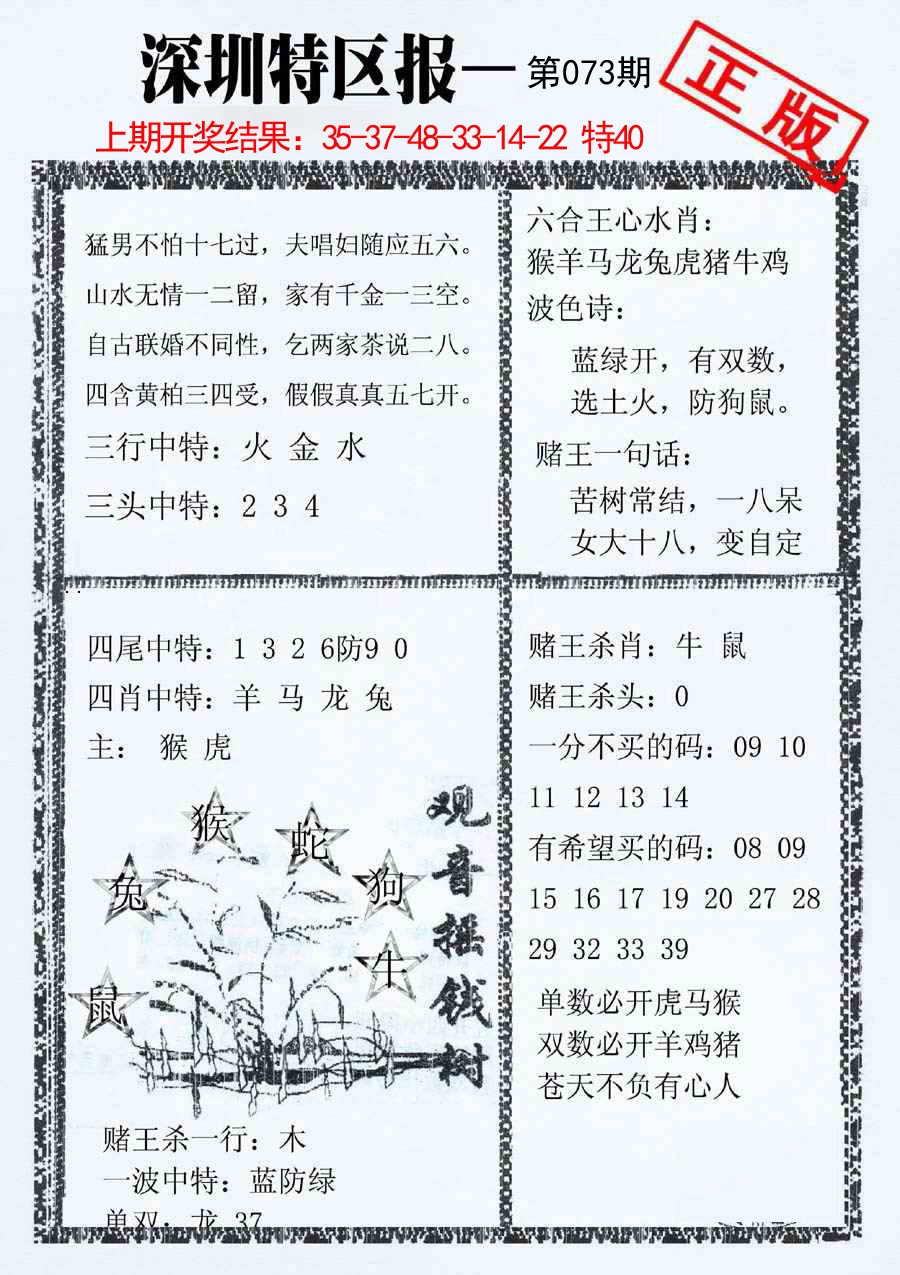 深圳特区报— 第073期
正版
上期开奖结果：35-37-48-33-14-22 特40
猛男不怕十七过，夫唱妇随应五六。
山水无情一二留，家有千金一三空。
自古联婚不同性，乞两家茶说二八。
四含黄柏三四受，假假真真五七开。
三行中特：火 金 水
三头中特：2 3 4
六合王心水肖：
猴羊马龙兔虎猪牛鸡
波色诗：
蓝绿开，有双数，
选土火，防狗鼠。
赌王一句话：
苦树常结，一八呆
女大十八，变自定
四尾中特：1 3 2 6防9 0
四肖中特：羊 马 龙 兔
主： 猴 虎
猴
蛇
兔
狗
牛
鼠
观音摇钱树
赌王杀一行：木
一波中特：蓝防绿
单双：龙 37
赌王杀肖：牛 鼠
赌王杀头：0
一分不买的码：09 10
11 12 13 14
有希望买的码：08 09
15 16 17 19 20 27 28
29 32 33 39
单数必开虎马猴
双数必开羊鸡猪
苍天不负有心人